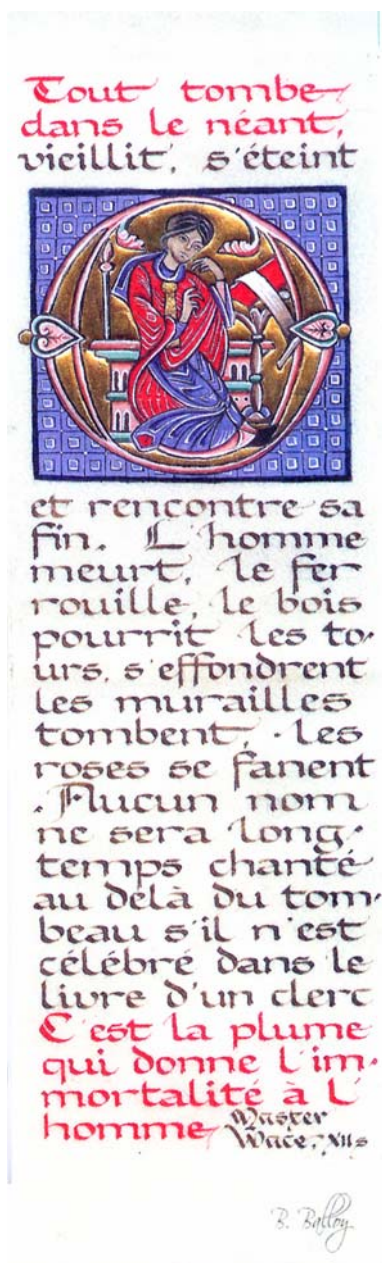 Tout tombe
dans le néant,
vieillit, s'éteint
et rencontre sa
fin. L'homme
meurt, le fer
rouille, le bois
pourrit les to-
urs, s'effondrent
les murailles
tombent, les
roses se fanent
. Aucun nom
ne sera long-
temps chanté
au delà du tom-
beau s'il n'est
célébré dans le
livre d'un clerc
C'est la plume
qui donne l'im-
mortalité à L'
homme
Master
Wace, XII s
B. Balloy